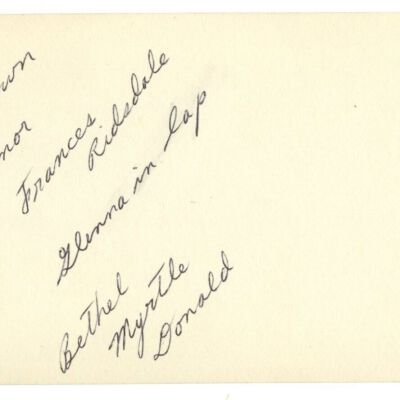 Frances
Ridsdale
Glenna in lap
Bethel
Myrtle
Donald